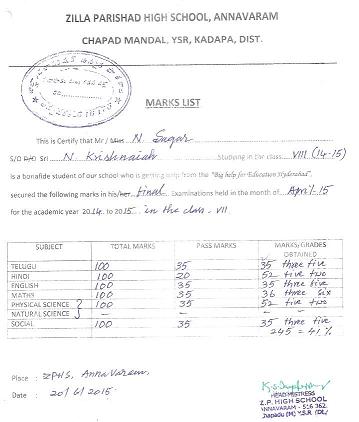 ZILLA PARISHAD HIGH SCHOOL, ANNAVARAM
CHAPAD MANDAL, YSR, KADAPA, DIST.
MARKS LIST
This is Certify that Mr / Miss N Sagar
S/O D/O Sri N Krishnaiah Studying in the class VIII (14-15)
is a bonafide student of our school who is getting help from the "Big help for Education Hyderabad"
secured the following marks in his/her final Examinations held in the month of April-15
for the academic year 2014 to 2015 in the class - VII
SUBJECT TOTAL MARKS PASS MARKS MARKS/GRADES OBTAINED
TELUGU 100 35 35 three five
HINDI 100 20 52 five two
ENGLISH 100 35 35 three five
MATHS 100 35 36 three six
PHYSICAL SCIENCE 100 35 52 five two
NATURAL SCIENCE – – –
SOCIAL 100 35 35 three five
245 = 41%
Place : ZPHS, Annavaram.
Date : 20/6/2015.
HEADMISTRESS
Z.P. HIGH SCHOOL
ANNAVARAM - 516 362
Chapadu (M), Y.S.R (Dt.)